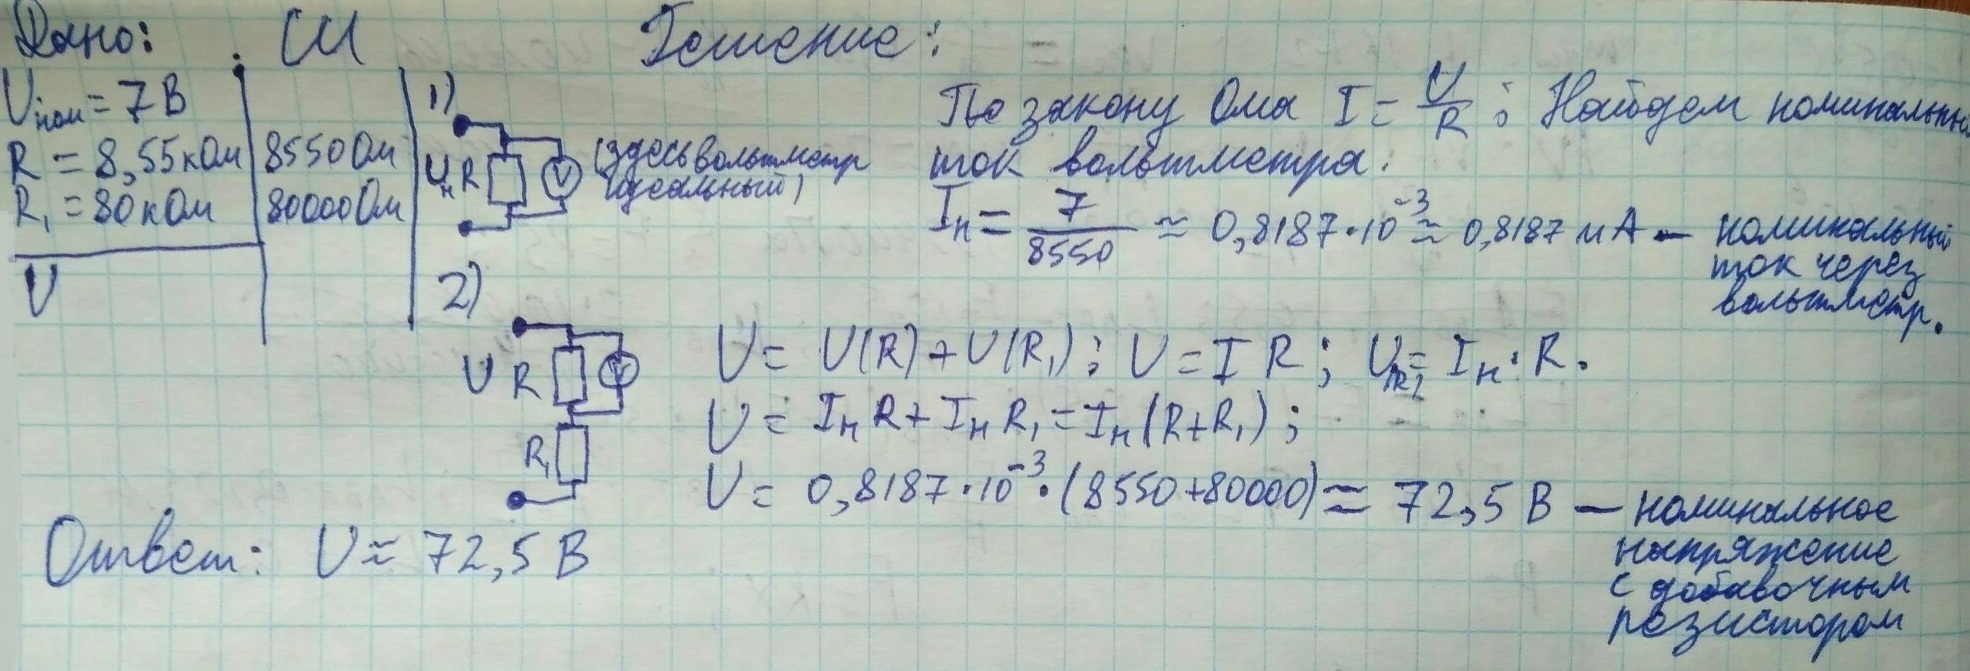 Дано: СИ Решение:
Uном = 7 В
R = 8,55 кОм 8550 Ом
R₁ = 80 кОм 80000 Ом
U
1)
Uн R V (здесь вольтметр
идеальный)
По закону Ома I = U/R ; Найдем номинальный
ток вольтметра:
Iн = 7/8550 ≈ 0,8187·10⁻³ ≈ 0,8187 мА – номинальный
ток через
вольтметр.
2)
U R V
R₁
U = U(R) + U(R₁) ; U = I R ; = Iн · R.
U = Iн R + Iн R₁ = Iн (R + R₁) ;
U = 0,8187·10⁻³·(8550+80000) ≈ 72,5 В – номинальное
напряжение
с добавочным
резистором
Ответ: U ≈ 72,5 В